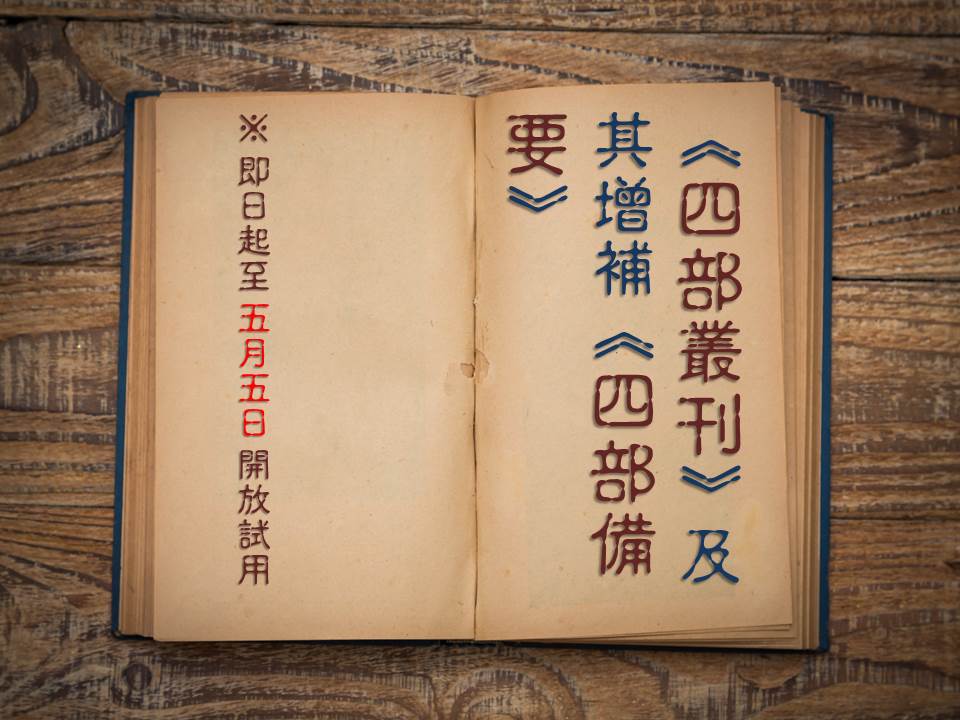 《四部叢刊》及
其增補《四部備
要》
※即日起至五月五日開放試用